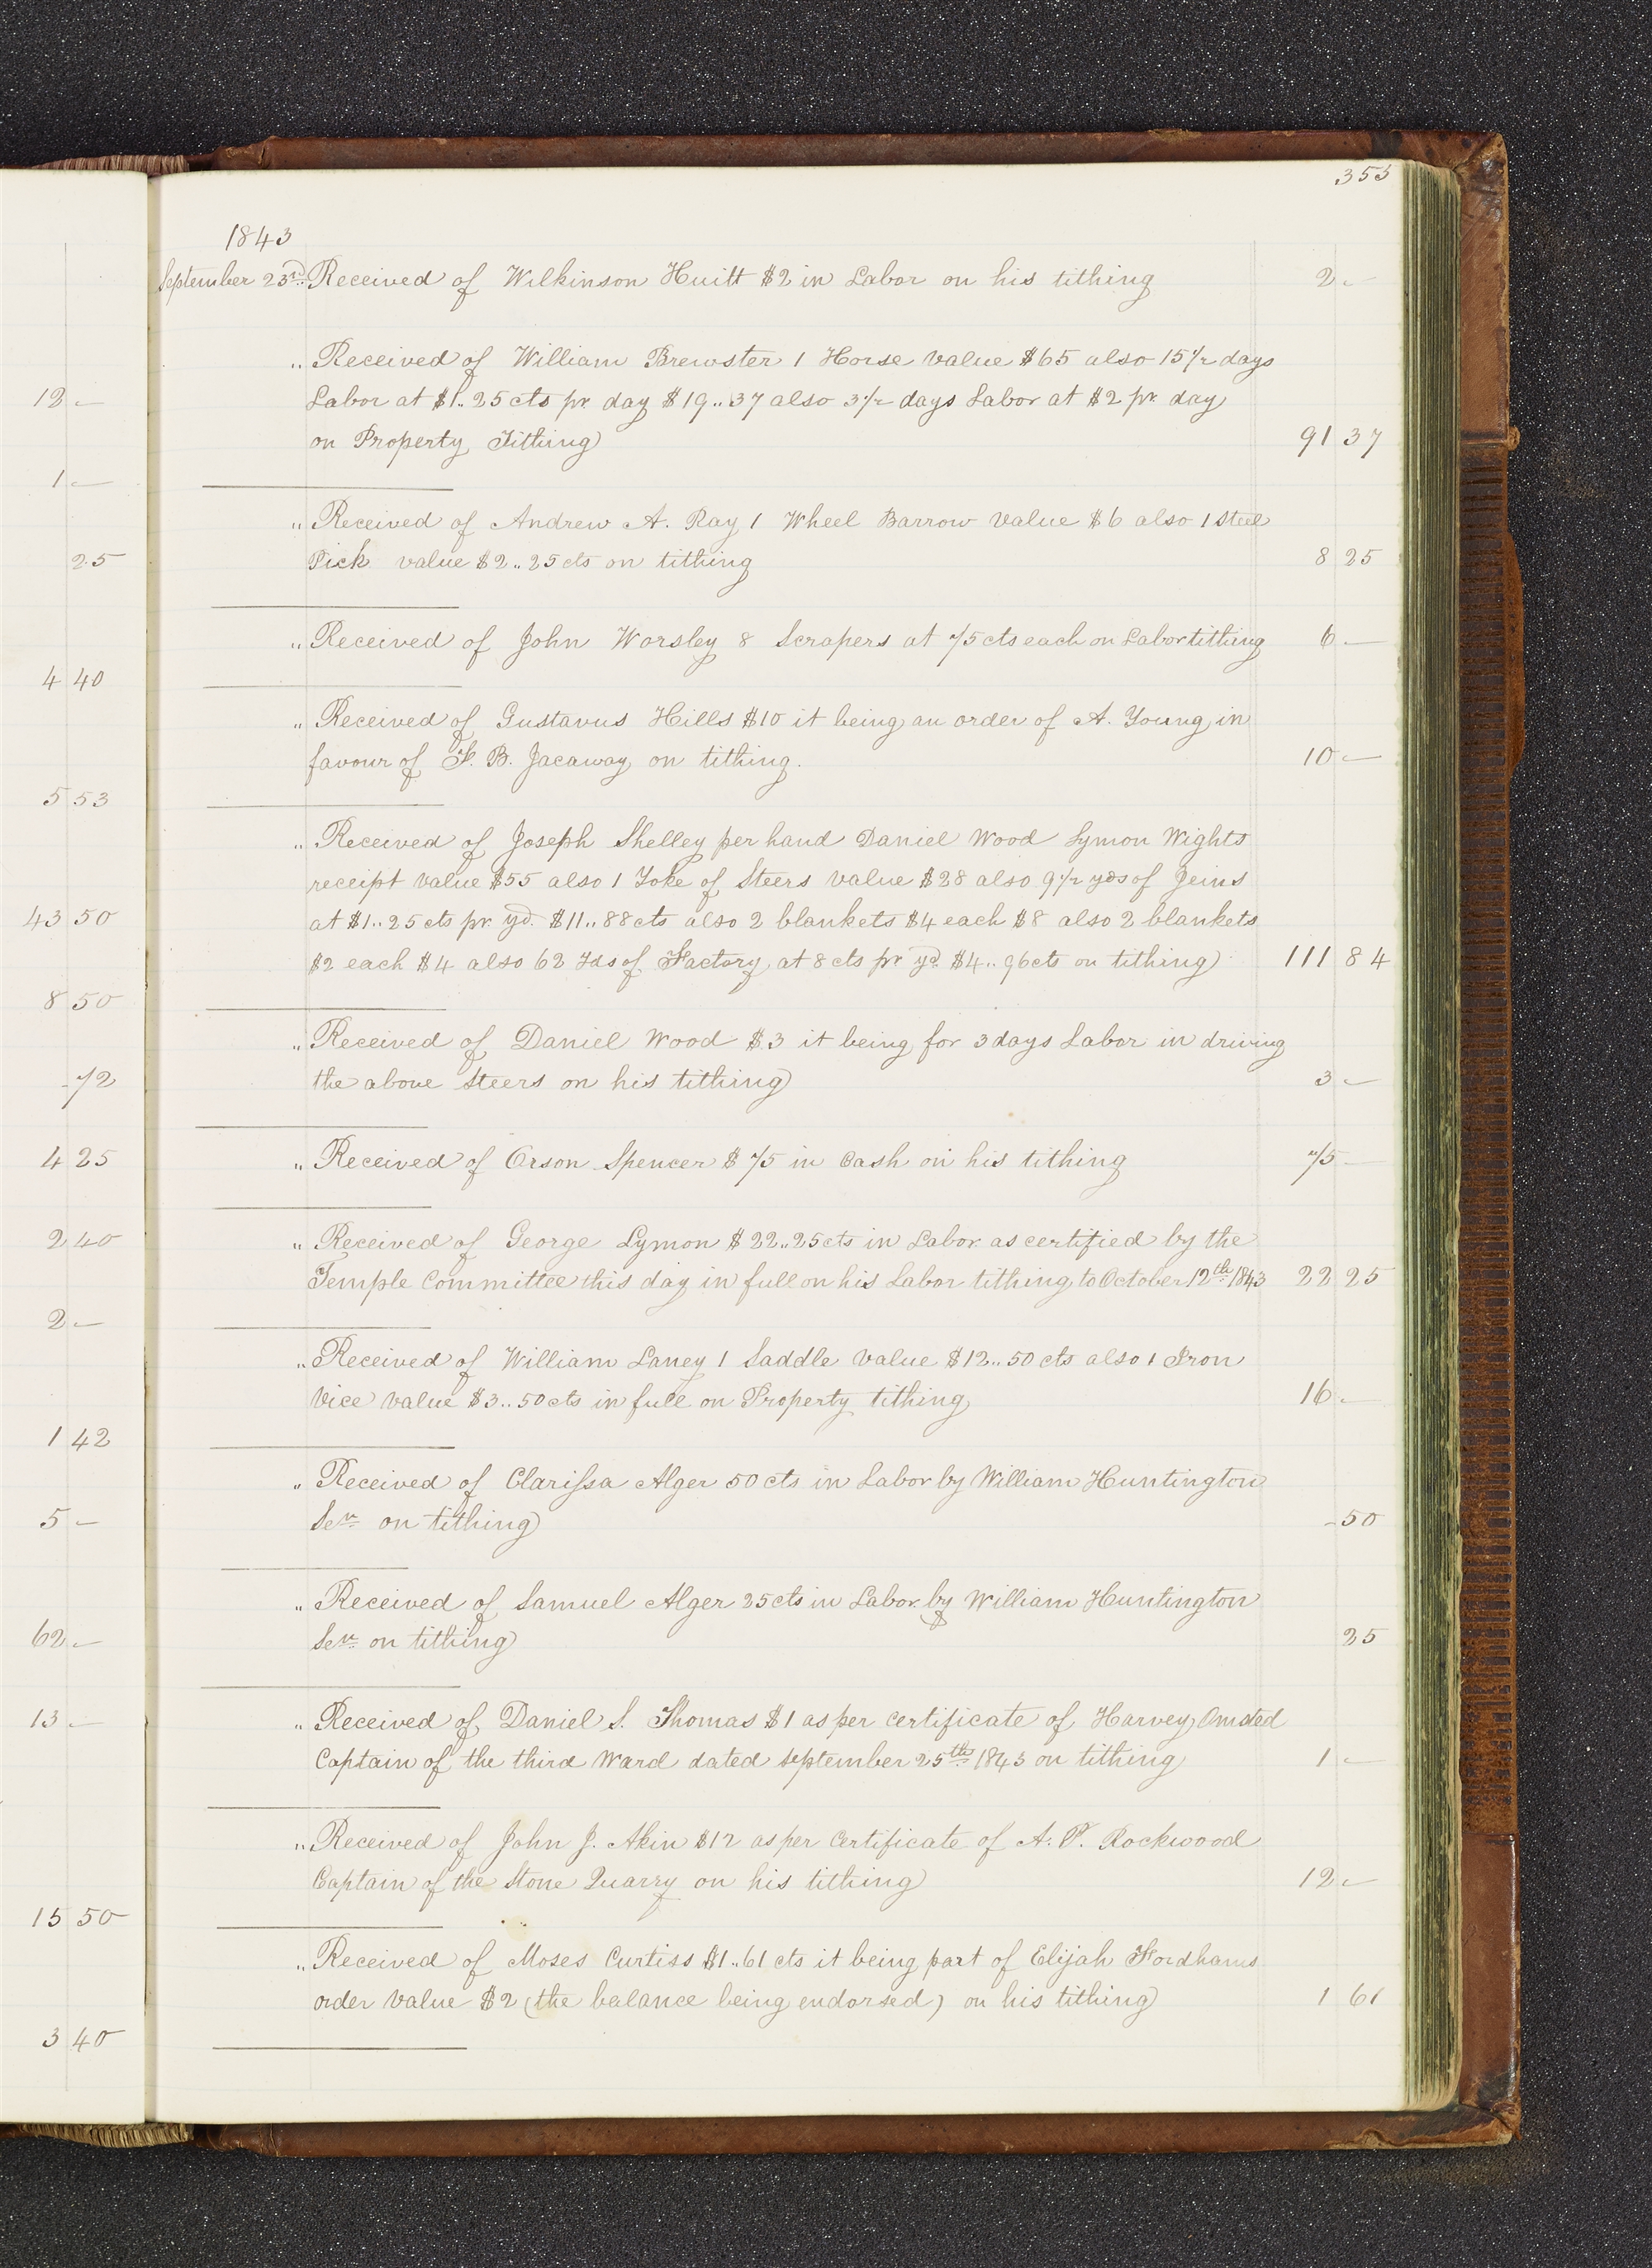 353
1843
September 23rd. Received of Wilkinson Huitt $2 in Labor on his tithing 2 —
" Received of William Brewster 1 Horse value $65 also 15 1/2 days
Labor at $1..25 cts pr. day $19..37 also 3 1/2 days Labor at $2 pr. day
on Property Tithing 91 37
" Received of Andrew A. Ray 1 Wheel Barrow value $6 also 1 steel
Pick value $2..25 cts on tithing 8 25
" Received of John Worsley 8 Scrapers at 75 cts each on Labor tithing 6 —
" Received of Gustavus Hills $10 it being an order of A. Young in
favour of F. B. Jacaway on tithing. 10 —
" Received of Joseph Shelley per hand Daniel Wood Lymon Wights
receipt value $55 also 1 Yoke of Steers value $28 also 9 1/2 yds of Jeins
at $1..25 cts pr. yd. $11..88 cts also 2 blankets $4 each $8 also 2 blankets
$2 each $4 also 62 Yds of Factory at 8 cts pr yd. $4..96 cts on tithing 111 84
" Received of Daniel Wood $3 it being for 3 days Labor in driving
the above Steers on his tithing 3 —
" Received of Orson Spencer $75 in Cash on his tithing 75 —
" Received of George Lymon $22..25 cts in Labor as certified by the
Temple Committee this day in full on his Labor tithing to October 12th. 1843 22 25
" Received of William Laney 1 Saddle value $12..50 cts also 1 Iron
Vice value $3..50 cts in full on Property tithing 16 —
" Received of Clarissa Alger 50 cts in Labor by William Huntington
Senr. on tithing - 50
" Received of Samuel Alger 25 cts in Labor by William Huntington
Senr. on tithing 25
" Received of Daniel S. Thomas $1 as per certificate of Harvey Omsted
Captain of the third Ward dated September 25th. 1843 on tithing 1 —
" Received of John J. Akin $12 as per Certificate of A. P. Rockwood
Captain of the Stone Quarry on his tithing 12 —
" Received of Moses Curtiss $1..61 cts it being part of Elijah Fordhams
order value $2 (the balance being endorsed) on his tithing 1 61
12 —
1 —
25
4 40
5 53
43 50
8 50
- 72
4 25
2 40
2 —
1 42
5 —
62 —
13 —
15 50
3 40